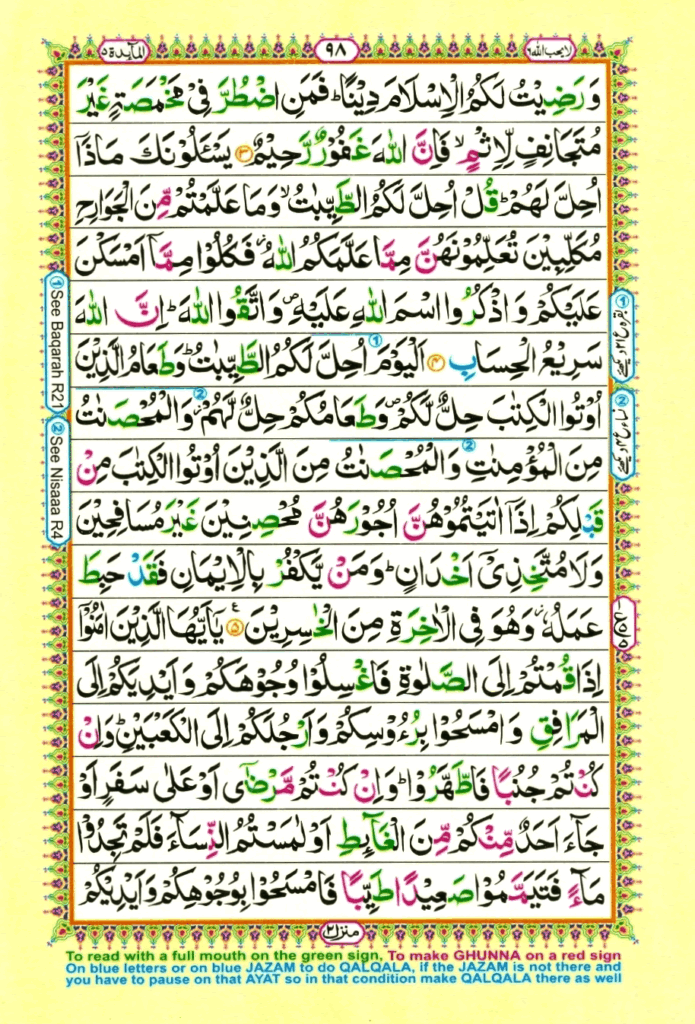 لا يحب الله ٦
٩٨
المآئدة ٥
وَرَضِيْتُ لَكُمُ الْاِسْلَامَ دِيْنًا ؕ فَمَنِ اضْطُرَّ فِيْ مَخْمَصَةٍ غَيْرَ
مُتَجَانِفٍ لِّاِثْمٍ ۙ فَاِنَّ اللّٰهَ غَفُوْرٌ رَّحِيْمٌ ۝۳ يَسْـَٔلُوْنَكَ مَاذَاۤ
اُحِلَّ لَهُمْ ؕ قُلْ اُحِلَّ لَكُمُ الطَّيِّبٰتُ ۙ وَمَا عَلَّمْتُمْ مِّنَ الْجَوَارِحِ
مُكَلِّبِيْنَ تُعَلِّمُوْنَهُنَّ مِمَّا عَلَّمَكُمُ اللّٰهُ ؗ فَكُلُوْا مِمَّاۤ اَمْسَكْنَ
عَلَيْكُمْ وَاذْكُرُوا اسْمَ اللّٰهِ عَلَيْهِ ۪ وَاتَّقُوا اللّٰهَ ؕ اِنَّ اللّٰهَ
سَرِيْعُ الْحِسَابِ ۝۴ اَلْيَوْمَ اُحِلَّ لَكُمُ الطَّيِّبٰتُ ؕ وَطَعَامُ الَّذِيْنَ
اُوْتُوا الْكِتٰبَ حِلٌّ لَّكُمْ ۪ وَطَعَامُكُمْ حِلٌّ لَّهُمْ ؗ وَالْمُحْصَنٰتُ
مِنَ الْمُؤْمِنٰتِ وَالْمُحْصَنٰتُ مِنَ الَّذِيْنَ اُوْتُوا الْكِتٰبَ مِنْ
قَبْلِكُمْ اِذَاۤ اٰتَيْتُمُوْهُنَّ اُجُوْرَهُنَّ مُحْصِنِيْنَ غَيْرَ مُسَافِحِيْنَ
وَلَا مُتَّخِذِيْۤ اَخْدَانٍ ؕ وَمَنْ يَّكْفُرْ بِالْاِيْمَانِ فَقَدْ حَبِطَ
عَمَلُهٗ ؗ وَهُوَ فِي الْاٰخِرَةِ مِنَ الْخٰسِرِيْنَ ۝۵ يٰۤاَيُّهَا الَّذِيْنَ اٰمَنُوْۤا
اِذَا قُمْتُمْ اِلَى الصَّلٰوةِ فَاغْسِلُوْا وُجُوْهَكُمْ وَاَيْدِيَكُمْ اِلَى
الْمَرَافِقِ وَامْسَحُوْا بِرُءُوْسِكُمْ وَاَرْجُلَكُمْ اِلَى الْكَعْبَيْنِ ؕ وَاِنْ
كُنْتُمْ جُنُبًا فَاطَّهَّرُوْا ؕ وَاِنْ كُنْتُمْ مَّرْضٰۤى اَوْ عَلٰى سَفَرٍ اَوْ
جَآءَ اَحَدٌ مِّنْكُمْ مِّنَ الْغَآئِطِ اَوْ لٰمَسْتُمُ النِّسَآءَ فَلَمْ تَجِدُوْا
مَآءً فَتَيَمَّمُوْا صَعِيْدًا طَيِّبًا فَامْسَحُوْا بِوُجُوْهِكُمْ وَاَيْدِيْكُمْ
① See Baqarah R21
② See Nisaaa R4
منزل ٢
To read with a full mouth on the green sign, To make GHUNNA on a red sign
On blue letters or on blue JAZAM to do QALQALA, if the JAZAM is not there and
you have to pause on that AYAT so in that condition make QALQALA there as well